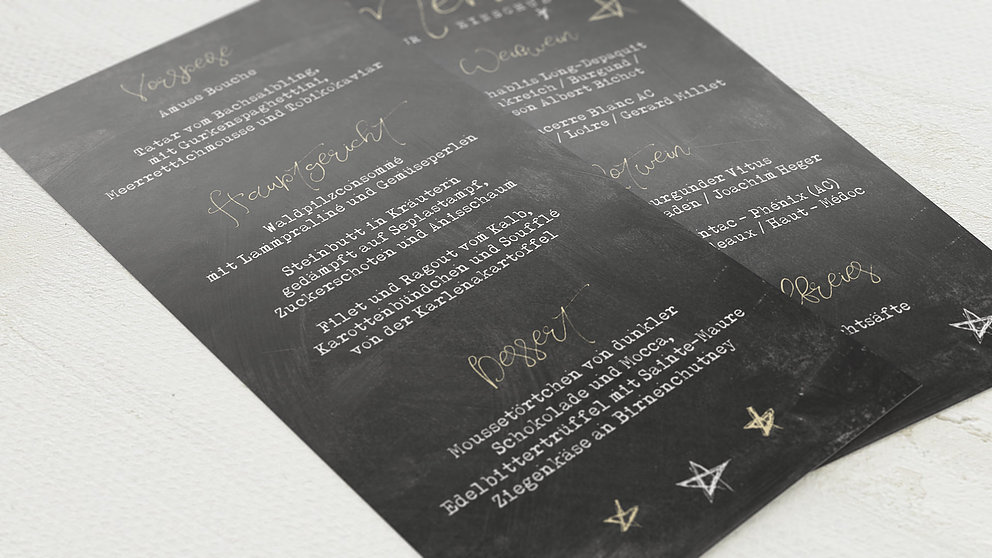 Vorspeise
Amuse Bouche
Tatar vom Bachsaibling,
mit Gurkenspaghettini,
Meerrettichmousse und Tobikokaviar
Hauptgericht
Waldpilzconsommé
mit Lammpraliné und Gemüseperlen
Steinbutt in Kräutern
gedämpft auf Sepiastampf,
Zuckerschoten und Anisschaum
Filet und Ragout vom Kalb,
Karottenbündchen und Soufflé
von der Karlenakartoffel
Dessert
Moussetörtchen von dunkler
Schokolade und Mocca,
Edelbittertrüffel mit Sainte-Maure
Ziegenkäse an Birnenchutney
Weißwein
hablis Long-Depaquit
nkreich / Burgund /
son Albert Bichot
ncerre Blanc AC
/ Loire / Gerard Millet
otwein
burgunder Vitus
aden / Joachim Heger
ntac - Phénix (AC)
eaux / Haut - Médoc
lfreies
chtsäfte